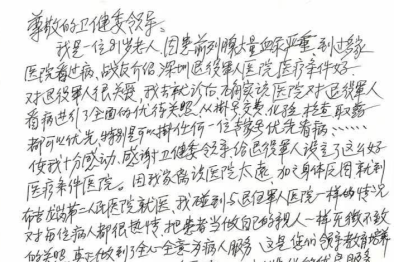 尊敬的卫健委领导:
我是一位9岁老人,因患前列腺大量血尿严重,到过多家
医院看过病,战友介绍,深圳退役军人医院,医疗条件好.
对退役军人很关爱,我去就诊后,确实该医院对退役军人
看病进行了全面的优待关照,从挂号交费,化验,检查,取药
都可以优先,特别是可以挂任何一位专家号优先看病,……
使我十分感动,感谢卫健委领导,给退役军人设立了这么好
医疗条件医院。因我家离该医院太远,加之身体原因就到
布吉龙岗第二人民医院就医,我碰到与退役军人医院一样的情况
对每位病人都很热情,把患者当做自己的亲人一样无微不致
的关照,真正做到了全心全意为病人服务,这是您们领导教育培养